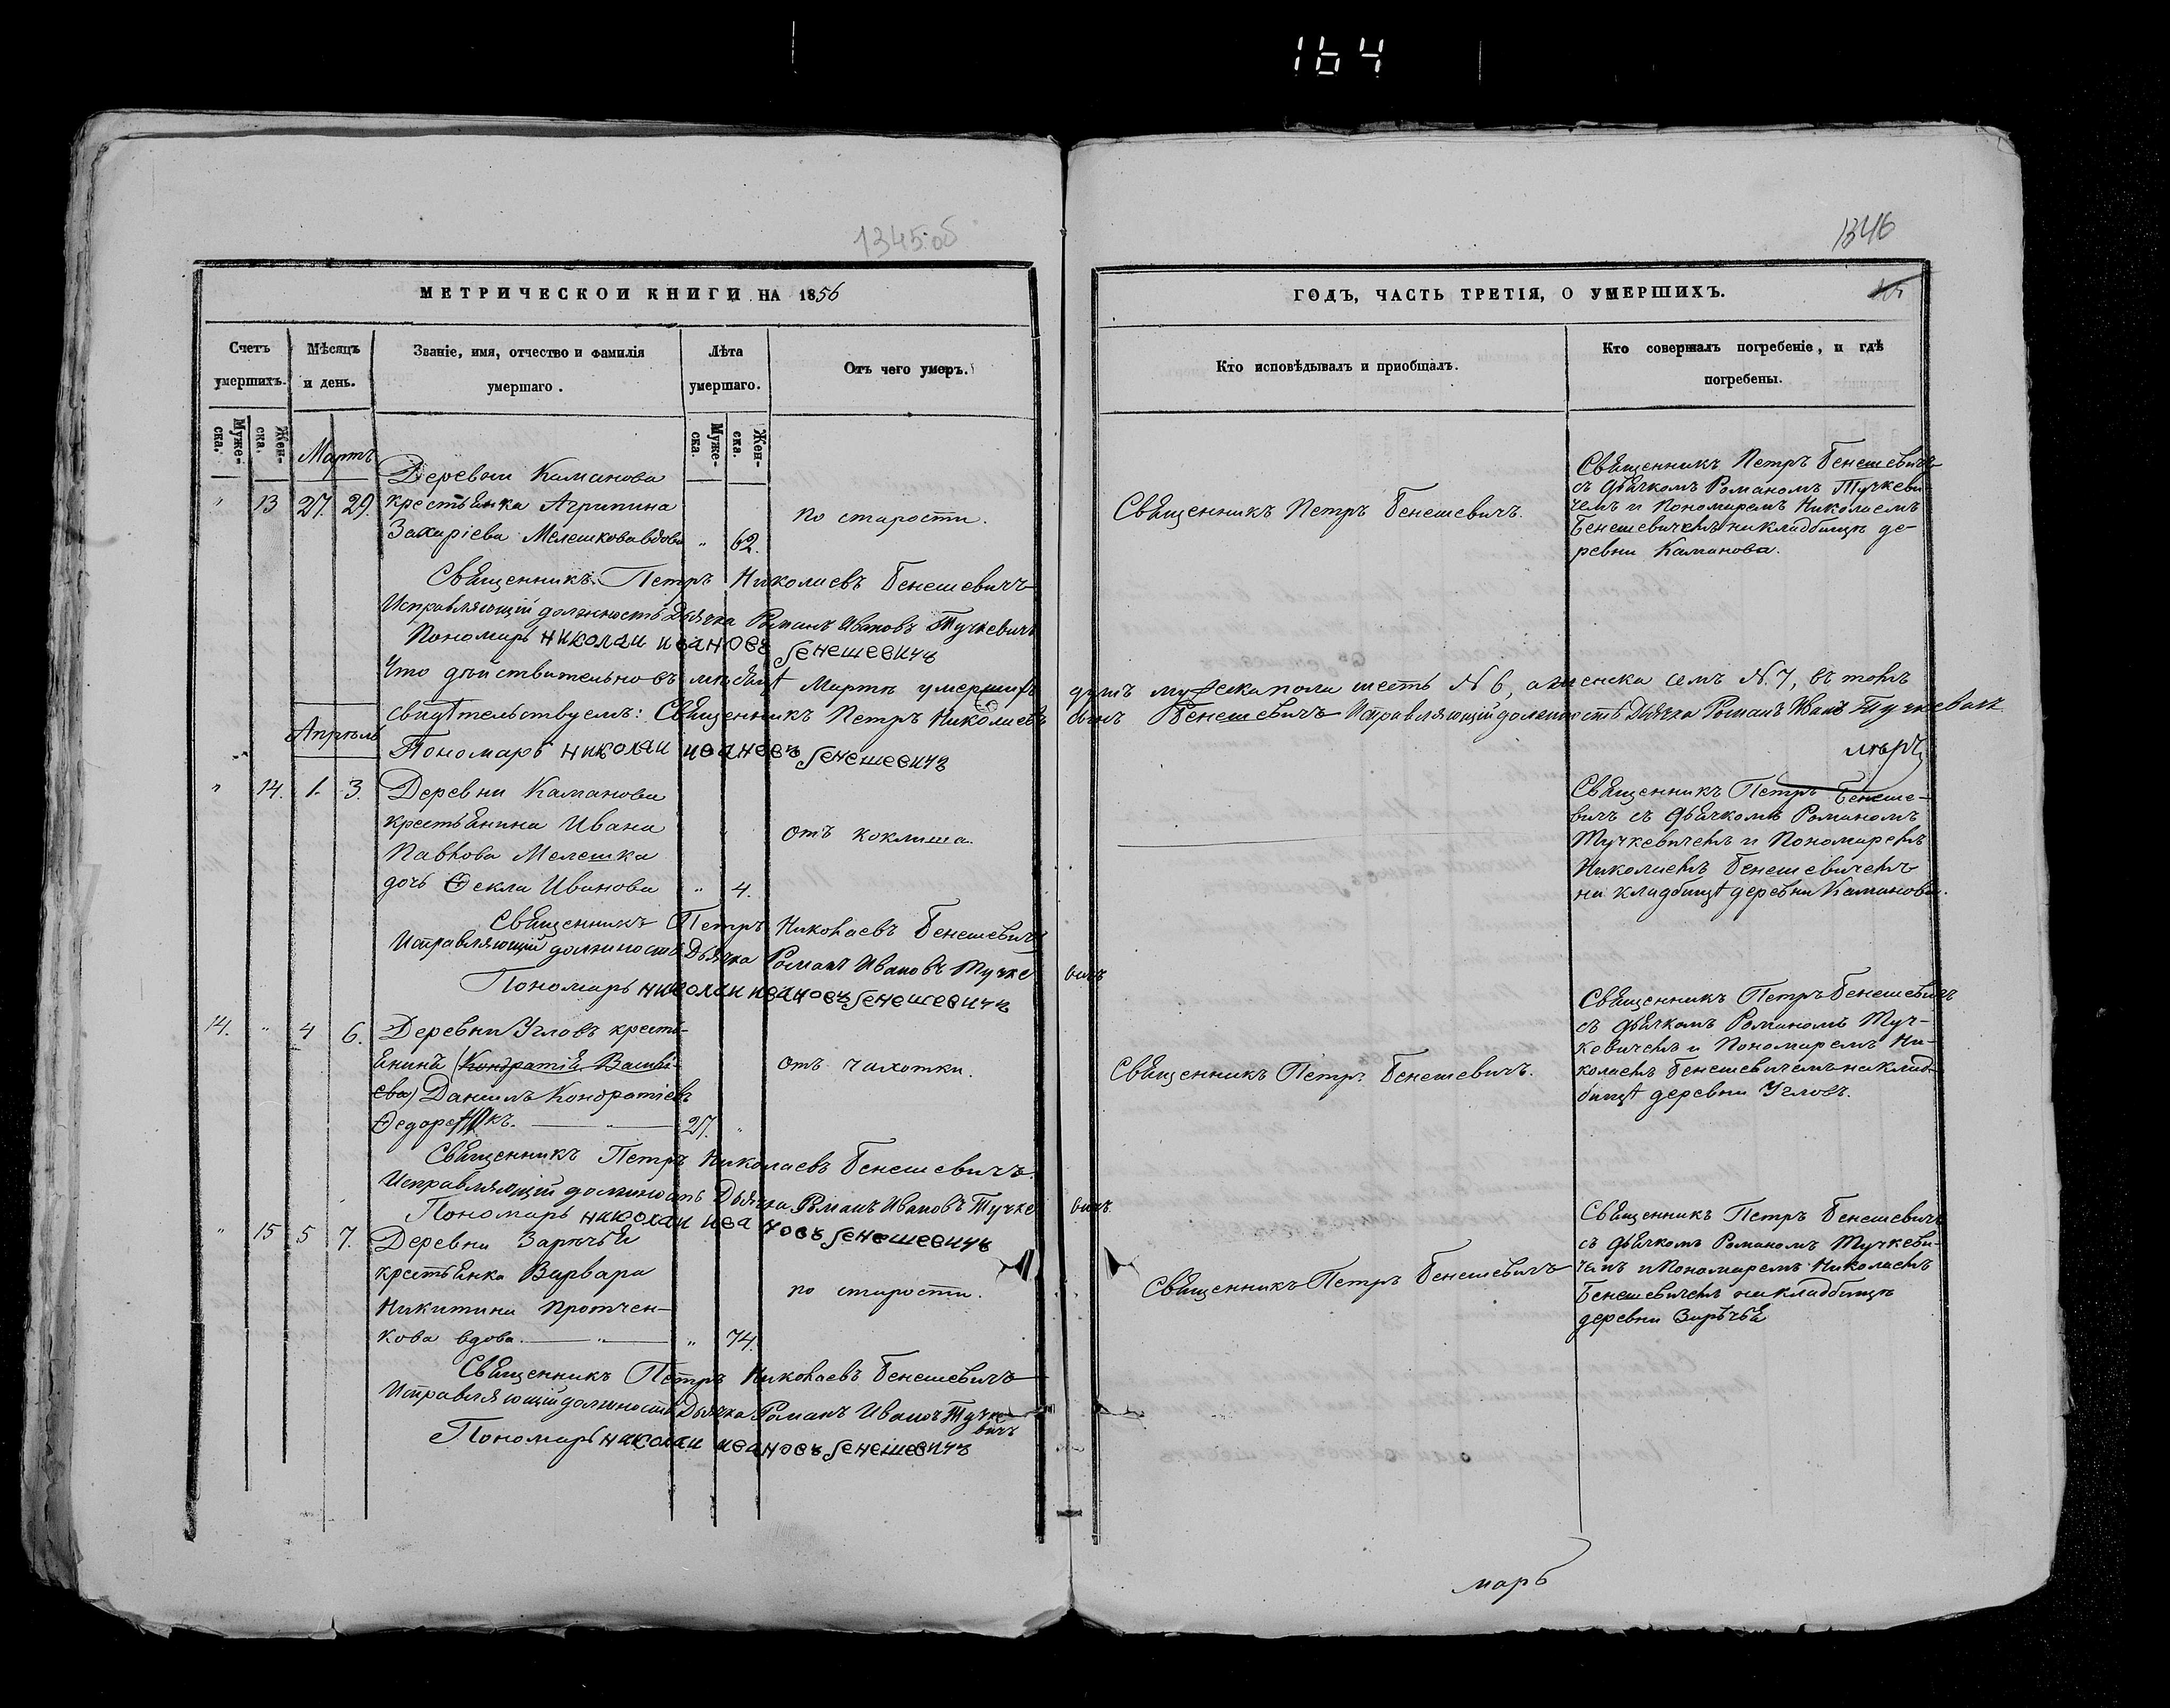 164
1345 об
1346
МЕТРИЧЕСКОИ КНИГИ НА 1856
ГОДЪ, ЧАСТЬ ТРЕТІЯ, О УМЕРШИХЪ.
Счетъ умершихъ.
Мѣсяцъ и день.
Званіе, имя, отчество и фамилія умершаго.
Лѣта умершаго.
Отъ чего умеръ.
Кто исповѣдывалъ и приобщалъ.
Кто совершалъ погребеніе, и гдѣ погребены.
Муже-ска.
Жен-ска.
Муже-ска.
Жен-ска.
Мартъ
" 13 27. 29.
Деревни Каманова
крестьянка Агрипина
Захаріева Мелешкова вдова " 62.
по старости.
Священникъ Петръ Бенешевичъ.
Священникъ Петръ Бенешевичъ
съ дьячкомъ Романомъ Тучкеви-
чемъ и Пономаремъ Николаемъ
Бенешевичемъ на кладбищѣ де-
ревни Каманова.
Священникъ Петръ Николаевъ Бенешевичъ
Исправляющій должность Дьячка Романъ Ивановъ Тучкевичъ
Пономарь николаи ивановъ бенешевичъ
Что дѣйствительно въ мѣсяцѣ Мартѣ умершихъ душъ мужеска пола шесть № 6, а женска семь № 7, въ томъ
свидѣтельствуемъ: Священникъ Петръ Николаевъ сынъ Бенешевичъ Исправляющій должность Дьячка Романъ Иванъ Тучкевичъ
Пономарь николаи ивановъ бенешевичъ
Апрѣль
" 14. 1. 3.
Деревни Каманова
крестьянина Ивана
Павлова Мелешка
дочь Ѳекла Иванова " 4.
отъ коклюша.
Священникъ Петръ Бенеше-
вичъ съ дьячкомъ Романомъ
Тучкевичемъ и Пономаремъ
Николаемъ Бенешевичемъ
на кладбищѣ деревни Каманова.
Священникъ Петръ Николаевъ Бенешевичъ
Исправляющій должность Дьячка Романъ Ивановъ Тучкевичъ
Пономарь николаи ивановъ бенешевичъ
14. " 4 6.
Деревни Угловъ кресть-
янинъ (Кондратія Василі-
ева) Даниилъ Кондратіевъ
27. "
отъ чахотки.
Священникъ Петръ Бенешевичъ.
Священникъ Петръ Бенешевичъ
съ дьячкомъ Романомъ Туч-
кевичемъ и Пономаремъ Ни-
колаемъ Бенешевичемъ на клад-
бищѣ деревни Угловъ.
Священникъ Петръ Николаевъ Бенешевичъ.
Исправляющій должность Дьячка Романъ Ивановъ Тучкевичъ
Пономарь николаи ивановъ бенешевичъ
" 15 5 7.
Деревни Зарѣчья
крестьянка Варвара
Никитина Протчен-
кова вдова. " 74.
по старости.
Священникъ Петръ Бенешевичъ
Священникъ Петръ Бенешевичъ
съ дьячкомъ Романомъ Тучкеви-
чемъ и Пономаремъ Николаемъ
Бенешевичемъ на кладбищѣ
деревни Зарѣчья
Священникъ Петръ Николаевъ Бенешевичъ
Исправляющій должность Дьячка Романъ Иванов Тучке
вичъ
Пономарь николаи ивановъ бенешевичъ
марь